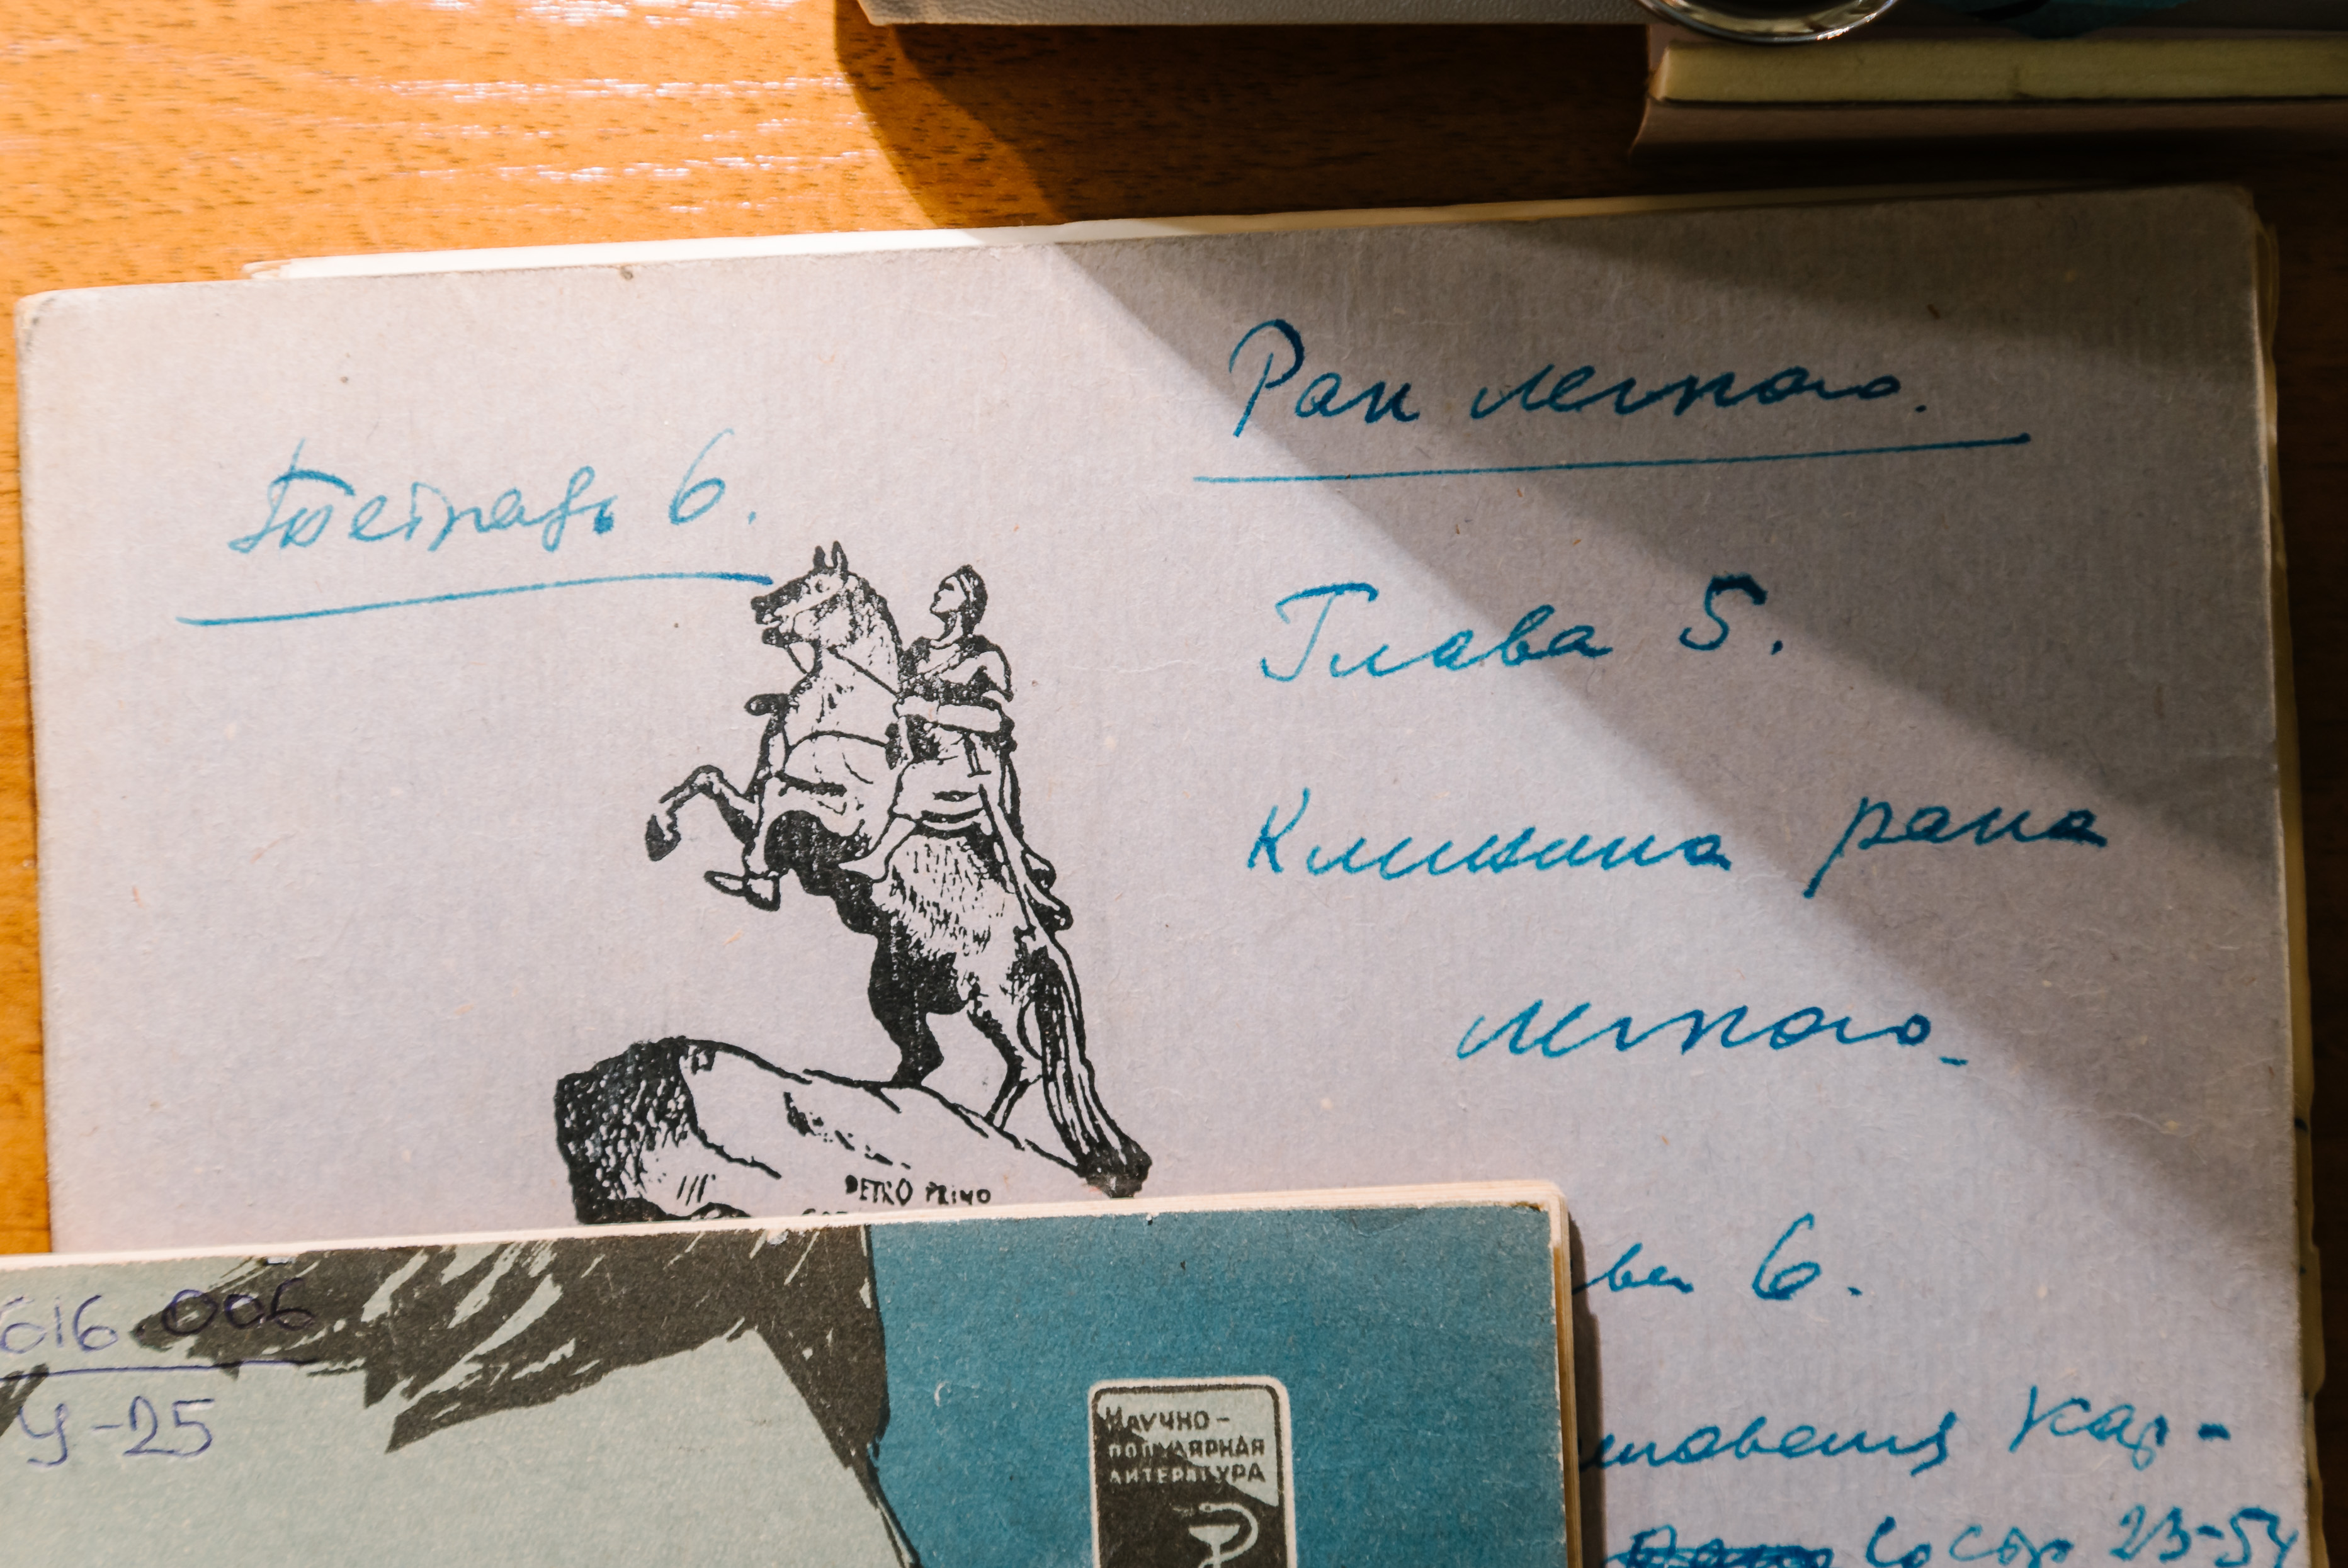 Рак легкого.
Тетрадь 6.
Глава 5.
Клиника рака
легкого.
PETRO PRIMO
ва 6.
кар-
со стр 23-54
616.006
У-25
НАУЧНО-
ПОПУЛЯРНАЯ
ЛИТЕРАТУРА